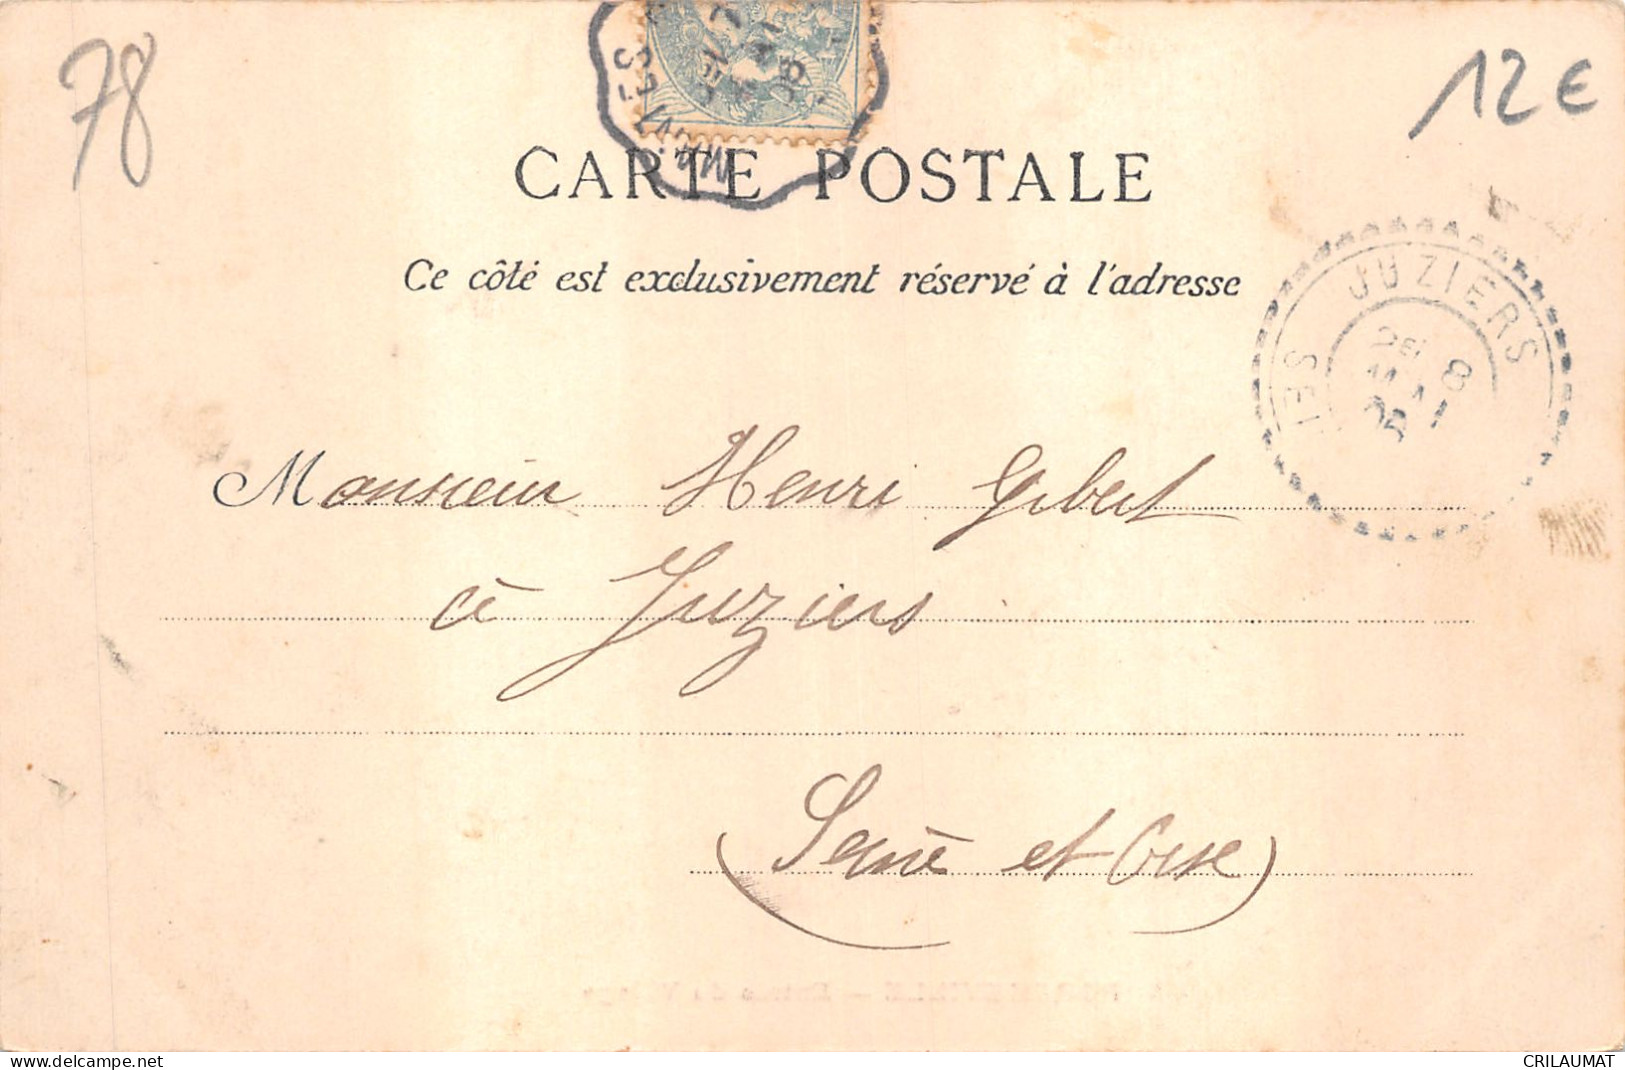 78
12 €
MANTES
CARTE POSTALE
Ce côté est exclusivement réservé à l'adresse
JUZIERS
8
MAI
Monsieur Henri Gibert
à Juziers
(Seine et Oise)
www.delcampe.net
CRILAUMAT